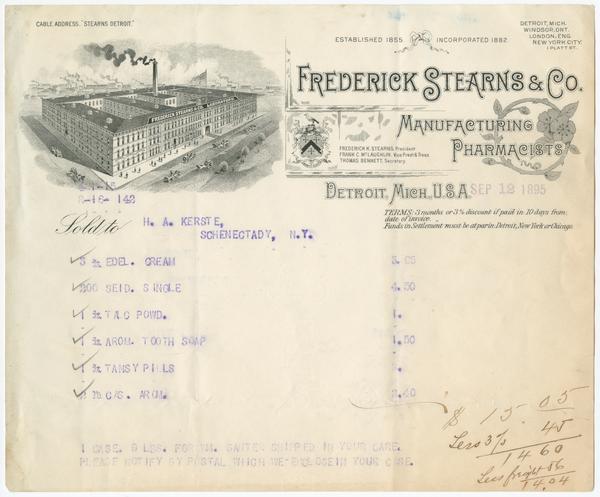 CABLE ADDRESS. "STEARNS DETROIT."
ESTABLISHED 1855. INCORPORATED 1882.
DETROIT, MICH.
WINDSOR, ONT.
LONDON, ENG.
NEW YORK CITY.
1 PLATT ST.
FREDERICK STEARNS & CO.
MANUFACTURING
PHARMACISTS
FREDERICK K. STEARNS, President
FRANK C. McLAUGHLIN, Vice Prest & Treas
THOMAS BENNETT, Secretary
DETROIT, MICH. U.S.A. SEP 12 1895
8-16- 142
TERMS: 3 months or 3% discount if paid in 10 days from
date of invoice.
Funds in Settlement must be at par in Detroit, New York or Chicago.
Sold to H. A. KERSTE,
SCHENECTADY, N.Y.
EDEL. CREAM
SEID. SINGLE 4.50
1 TAC POWD. 1.
1 AROM. TOOTH SOAP 1.50
1 TANSY PILLS
C/S. AROM.
$ 15.05
Less 3% 45
14 60
Less freight 56
14.04
1 CASE. 9 LBS. FOR WM. SHIPPED IN YOUR CASE.
PLEASE NOTIFY BY POSTAL WHICH WE ENCLOSE IN YOUR CASE.